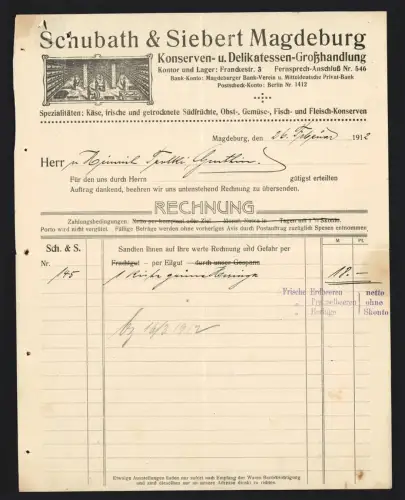 Schubath & Siebert Magdeburg
Konserven- u. Delikatessen-Großhandlung
Kontor und Lager: Franckestr. 3 Fernsprech-Anschluß Nr. 546
Bank-Konto: Magdeburger Bank-Verein u. Mitteldeutsche Privat-Bank
Postscheck-Konto: Berlin Nr. 1412
Spezialitäten: Käse, frische und getrocknete Südfrüchte, Obst-, Gemüse-, Fisch- und Fleisch-Konserven
Magdeburg, den 26. Februar 1912
Herr Heinrich
Für den uns durch Herrn gütigst erteilten
Auftrag dankend, beehren wir uns untenstehend Rechnung zu übersenden.
RECHNUNG
Zahlungsbedingungen: Netto per Ziel. Monat, Kassa in Tagen mit % Skonto.
Porto wird nicht vergütet. Fällige Beträge werden ohne vorheriges Avis durch Postauftrag zuzüglich Spesen entnommen
Sch. & S. Sandten Ihnen auf Ihre werte Rechnung und Gefahr per M. Pf.
Nr. Frachtgut - per Eilgut - durch unser Gespann.
/45 1 Kiste grüne Heringe 12.—
Frische Erdbeeren netto
ohne
Skonto
15/3 1912